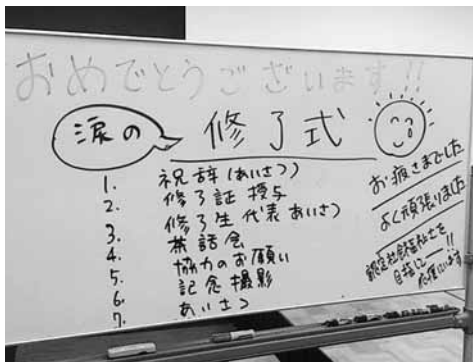 おめでとうございます!!
涙の
修了式
1. 祝辞(あいさつ)
2. 修了証 授与
3. 修了生 代表 あいさつ
4. 茶話会
5. 協力のお願い
6. 記念撮影
7. あいさつ
お疲さまでした
よく頑張りました
認定社会福祉士を
目指に――!!
応援しています